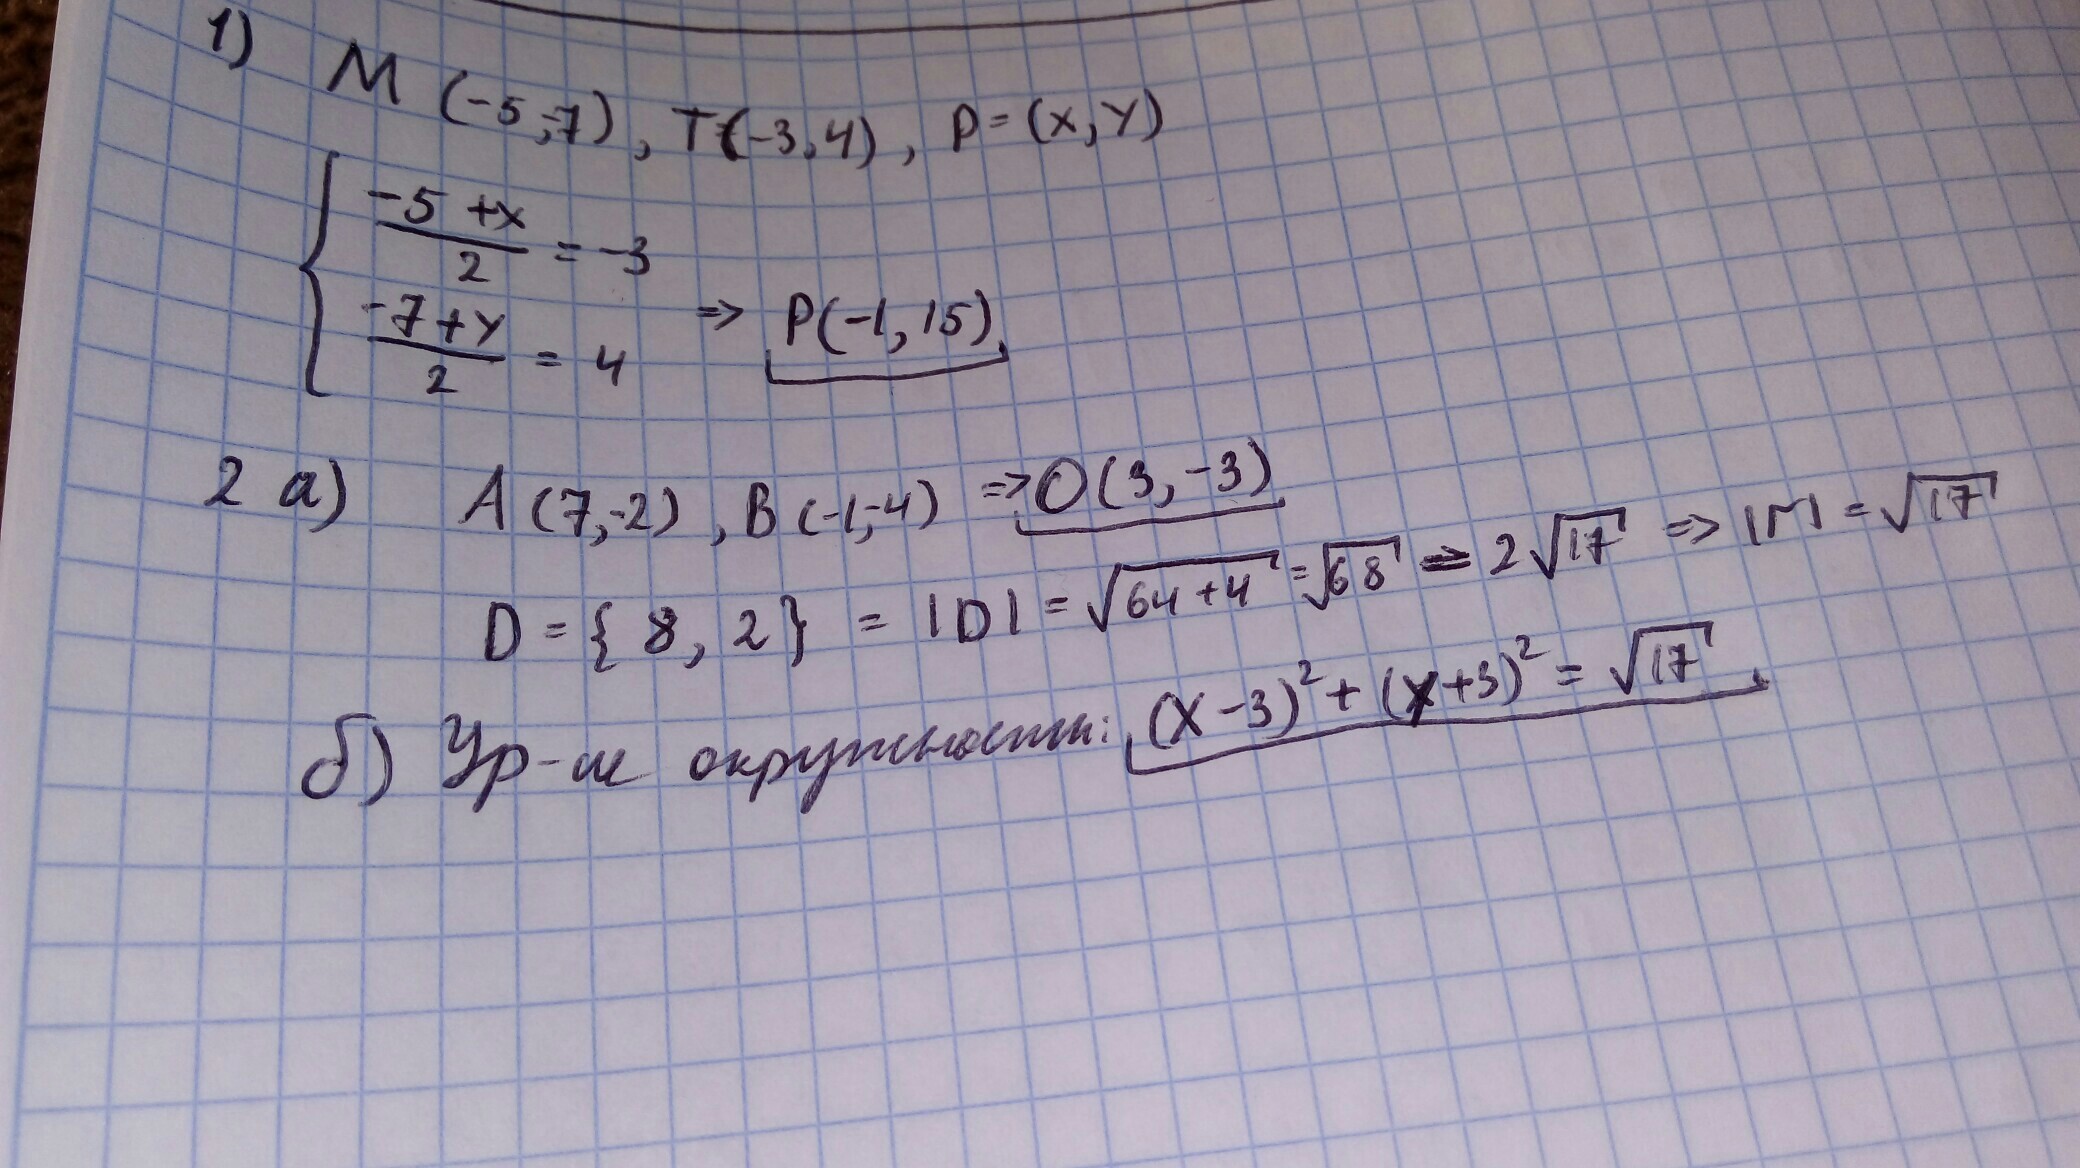 1) M (-5,-7), T(-3,4), P=(x,y)
{ (-5+x)/2 = -3
(-7+y)/2 = 4 => P(-1,15)
2 а) A(7,-2), B(-1,-4) => O(3,-3)
D={8,2} = |D| = √(64+4) = √68 = 2√17 => |r| = √17
б) Ур-ие окружности: (x-3)² + (y+3)² = √17